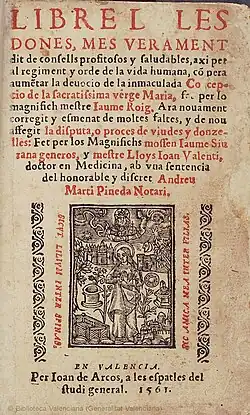 LIBRE LLES
DONES, MES VERAMENT
dit de consells profitosos y saludables, axi per
al regiment y orde de la vida humana, cõ pera
aumẽtar la deuocio de la inmaculada Co cep-
cio de la sacratissima verge Maria, fet per lo
magnifich mestre Iaume Roig, Ara nouament
corregit y esmenat de moltes faltes, y de nou
affegit la disputa, o proces de viudes y donze-
lles: Fet per los Magnifichs mossen Iaume Siu
rana generos, y mestre Lloys Ioan Valenti,
doctor en Medicina, ab vna sentencia
del honorable y discret Andreu
Marti Pineda Notari.
SICVT LILIVM INTER SPINAS.
SIC AMICA MEA INTER FILIAS.
EN VALENCIA.
Per Ioan de Arcos, a les espatles del
studi general. 1561.
© Biblioteca Valenciana (Generalitat Valenciana)